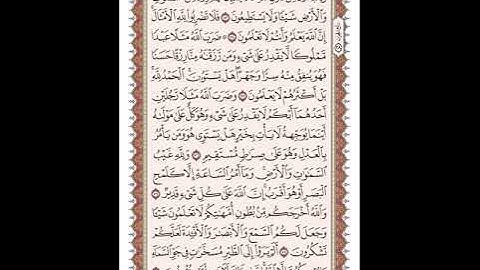 وَٱلْأَرْضِ شَيْـًٔا وَلَا يَسْتَطِيعُونَ ۝ فَلَا تَضْرِبُوا۟ لِلَّهِ ٱلْأَمْثَالَ
إِنَّ ٱللَّهَ يَعْلَمُ وَأَنتُمْ لَا تَعْلَمُونَ ۝ ضَرَبَ ٱللَّهُ مَثَلًا عَبْدًا
مَّمْلُوكًا لَّا يَقْدِرُ عَلَىٰ شَىْءٍ وَمَن رَّزَقْنَـٰهُ مِنَّا رِزْقًا حَسَنًا
فَهُوَ يُنفِقُ مِنْهُ سِرًّا وَجَهْرًا هَلْ يَسْتَوُۥنَ ٱلْحَمْدُ لِلَّهِ
بَلْ أَكْثَرُهُمْ لَا يَعْلَمُونَ ۝ وَضَرَبَ ٱللَّهُ مَثَلًا رَّجُلَيْنِ
أَحَدُهُمَآ أَبْكَمُ لَا يَقْدِرُ عَلَىٰ شَىْءٍ وَهُوَ كَلٌّ عَلَىٰ مَوْلَىٰهُ
أَيْنَمَا يُوَجِّههُّ لَا يَأْتِ بِخَيْرٍ هَلْ يَسْتَوِى هُوَ وَمَن يَأْمُرُ
بِٱلْعَدْلِ وَهُوَ عَلَىٰ صِرَٰطٍ مُّسْتَقِيمٍ ۝ وَلِلَّهِ غَيْبُ
ٱلسَّمَـٰوَٰتِ وَٱلْأَرْضِ وَمَآ أَمْرُ ٱلسَّاعَةِ إِلَّا كَلَمْحِ
ٱلْبَصَرِ أَوْ هُوَ أَقْرَبُ إِنَّ ٱللَّهَ عَلَىٰ كُلِّ شَىْءٍ قَدِيرٌ ۝
وَٱللَّهُ أَخْرَجَكُم مِّنۢ بُطُونِ أُمَّهَـٰتِكُمْ لَا تَعْلَمُونَ شَيْـًٔا
وَجَعَلَ لَكُمُ ٱلسَّمْعَ وَٱلْأَبْصَـٰرَ وَٱلْأَفْـِٔدَةَ لَعَلَّكُمْ
تَشْكُرُونَ ۝ أَلَمْ يَرَوْا۟ إِلَى ٱلطَّيْرِ مُسَخَّرَٰتٍ فِى جَوِّ ٱلسَّمَآءِ